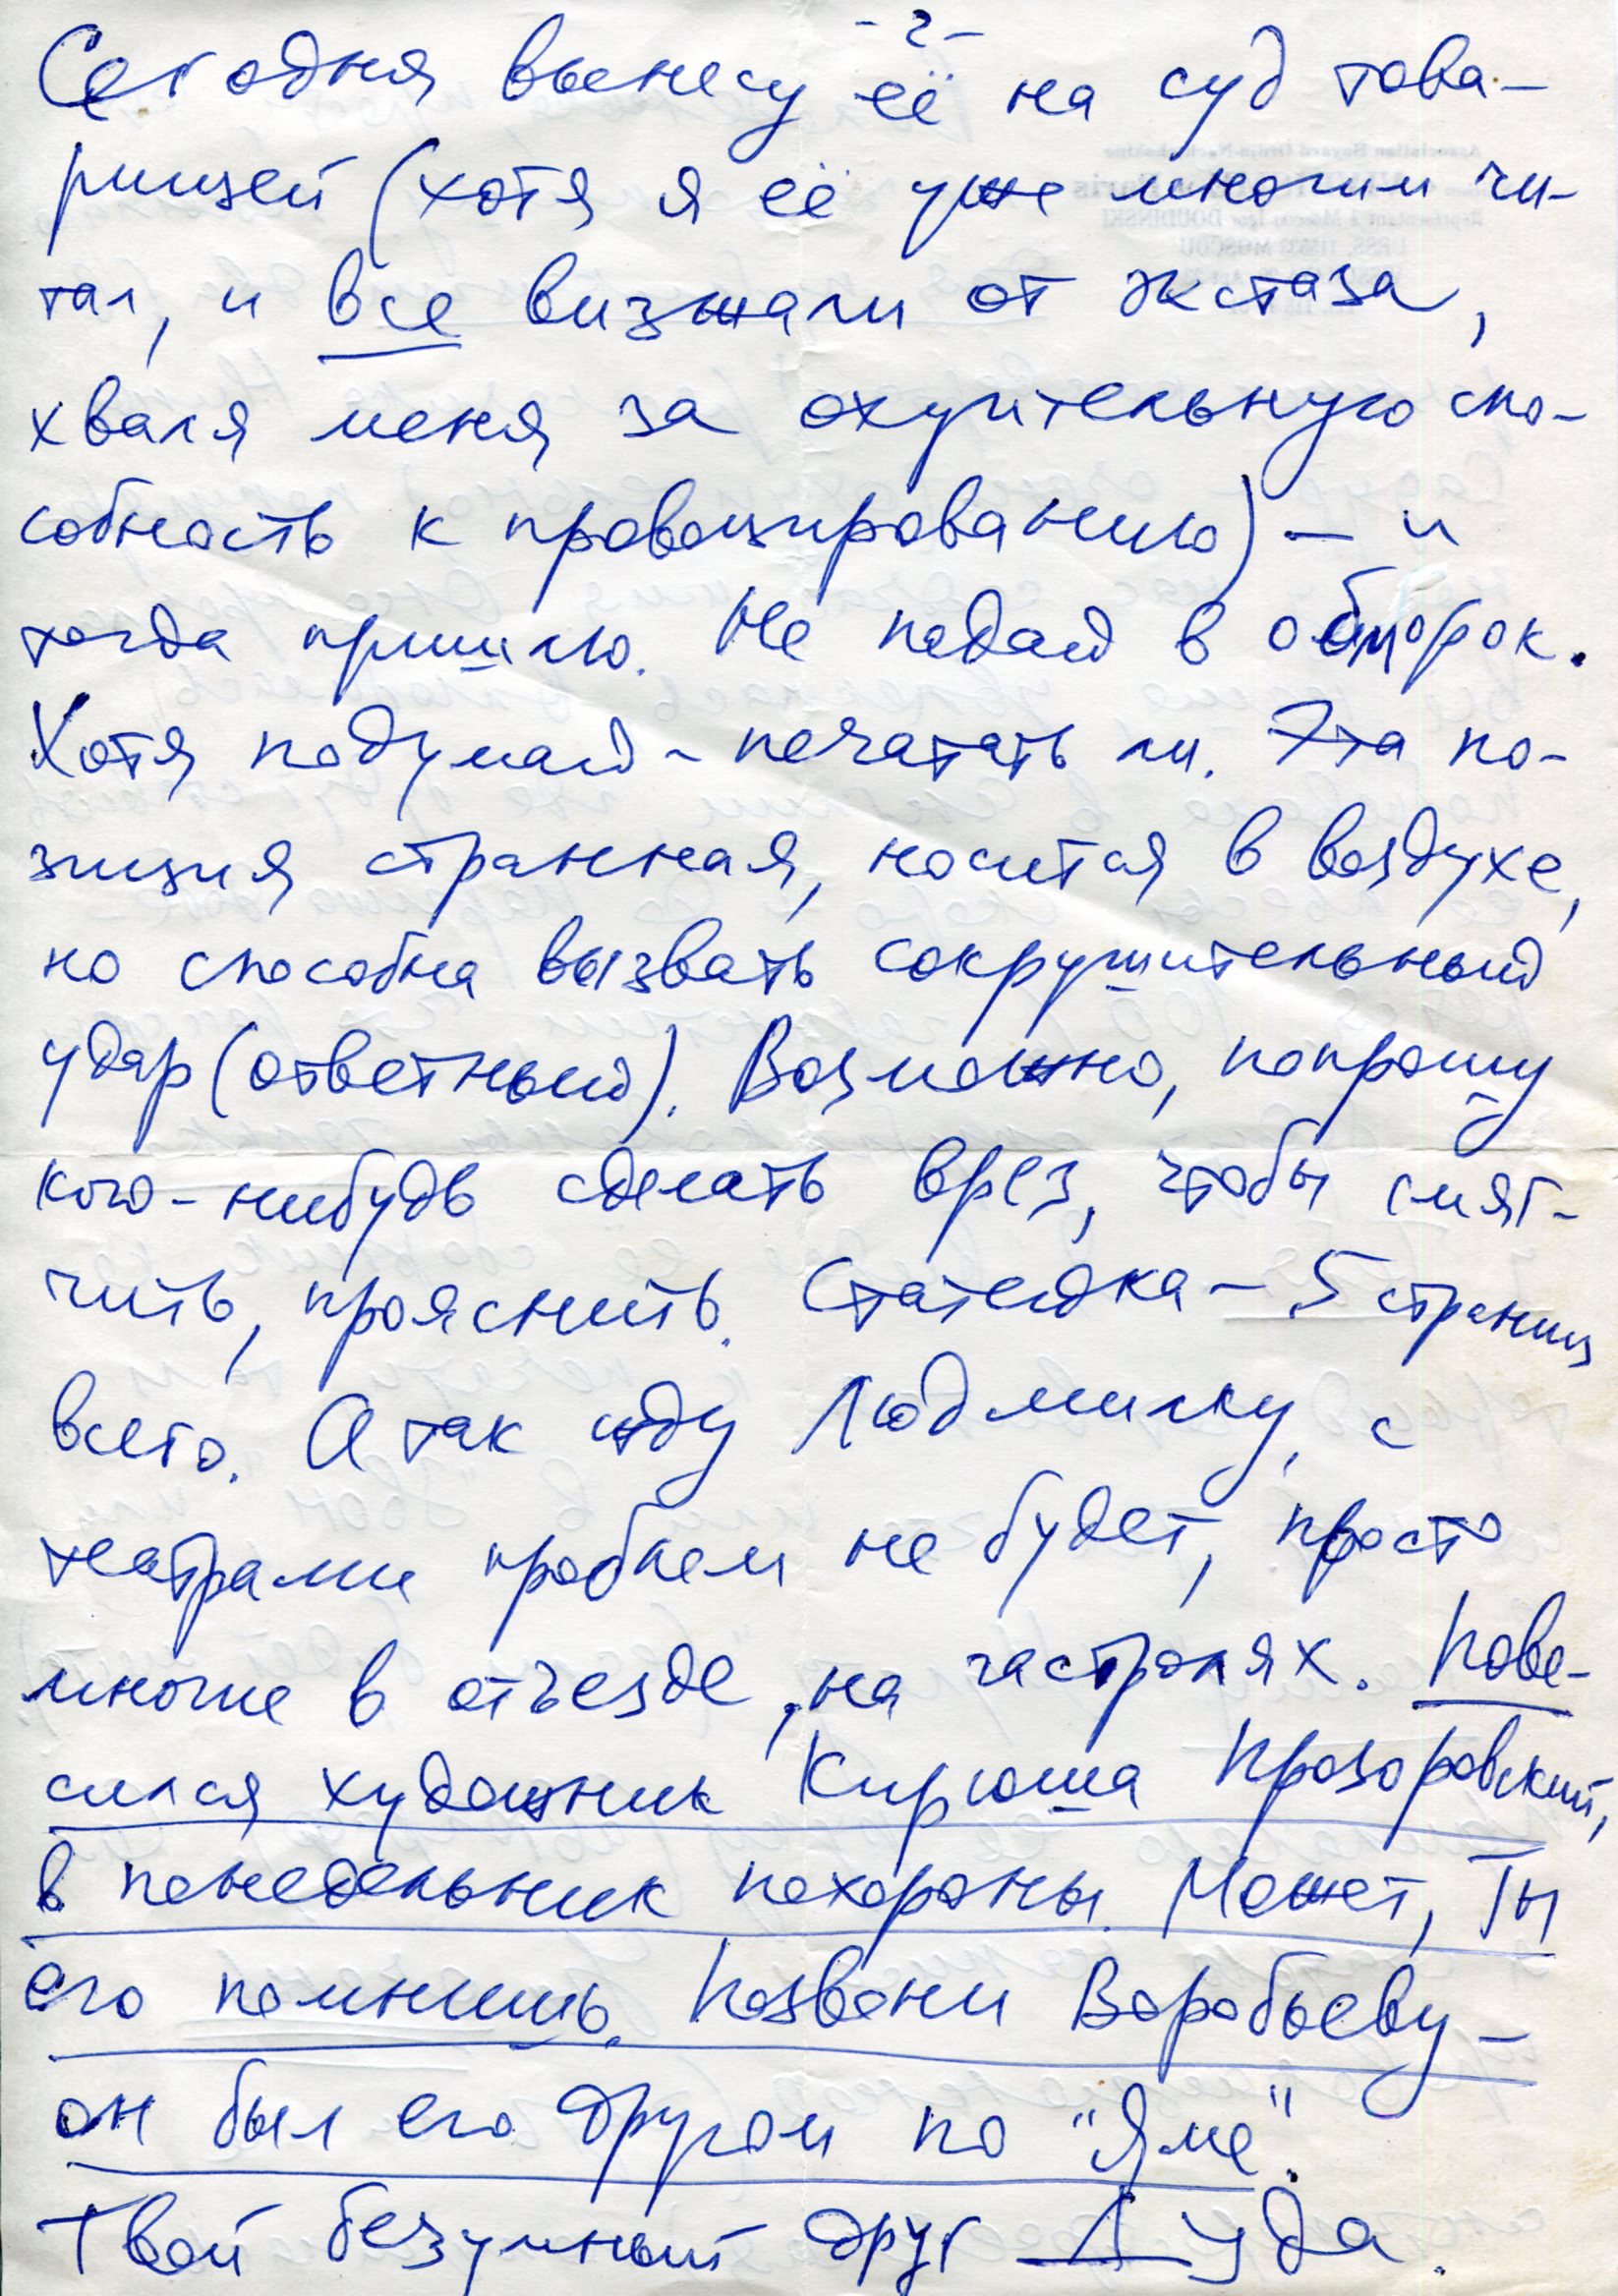 - 2 -
Сегодня вынесу её на суд това-
рищей (хотя я её уже многим чи-
тал, и все визжали от экстаза,
хваля меня за охуительную спо-
собность к провоцированию) — и
тогда пришлю. Не падай в обморок.
Хотя подумай - печатать ли. Эта по-
зиция странная, носится в воздухе,
но способна вызвать сокрушительный
удар (ответный). Возможно, попрошу
кого-нибудь сделать врез, чтобы смяг-
чить, прояснить. Статейка — 5 страниц
всего. А так жду Людмилку, с
театрами проблем не будет, просто
многие в отъезде, на гастролях. Пове-
сился художник Кирюша Прозоровский,
в понедельник похороны. Может, Ты
его помнишь. Позвони Воробьеву —
он был его другом по "Яме".
Твой безумный друг Дуда.